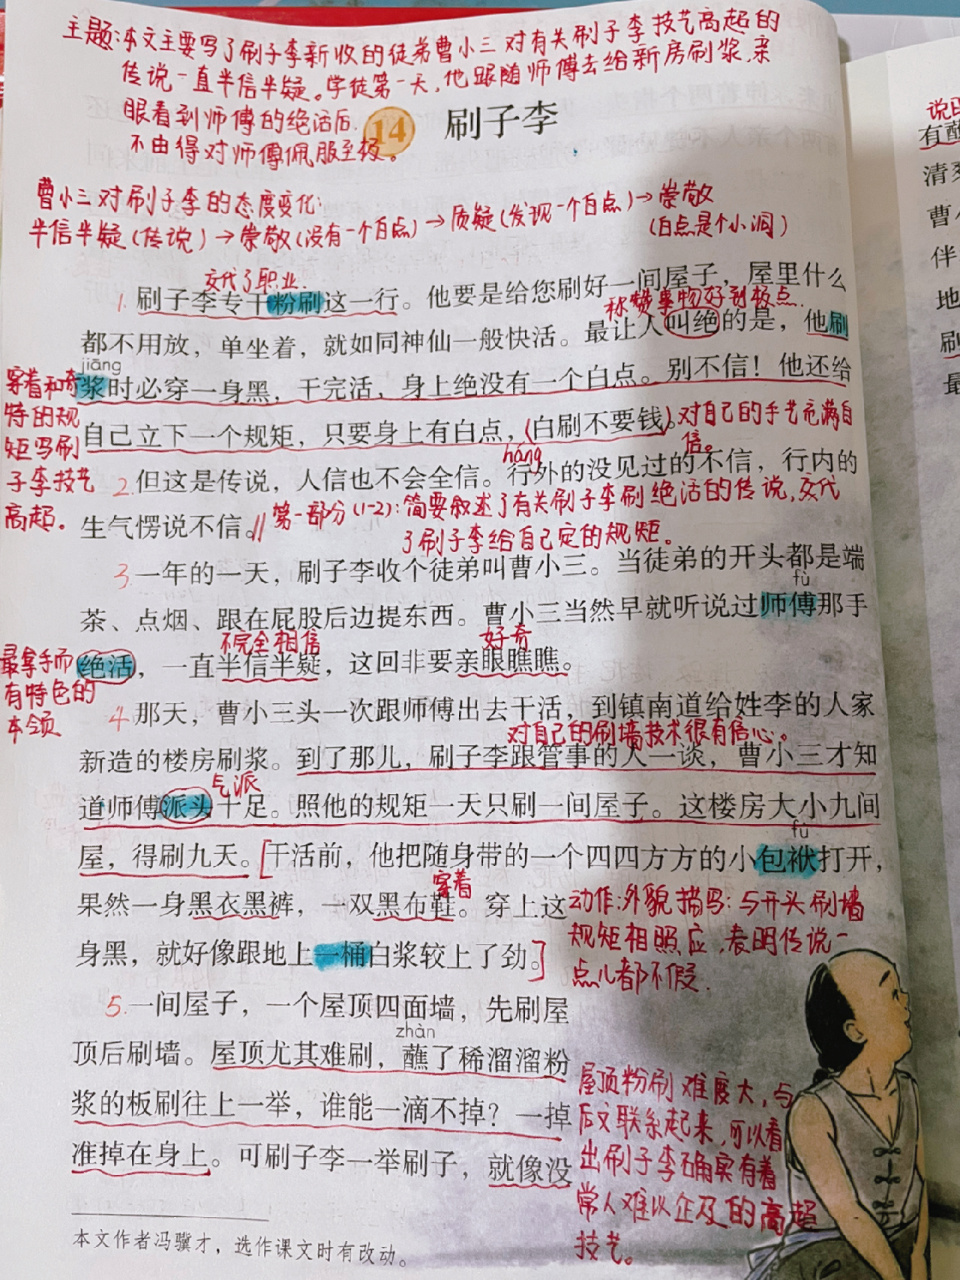 主题:本文主要写了刷子李新收的徒弟曹小三对有关刷子李技艺高超的
传说一直半信半疑。学徒第一天,他跟随师傅去给新房刷浆,亲
眼看到师傅的绝活后.
不由得对师傅佩服至极。
14 刷子李
曹小三对刷子李的态度变化:
半信半疑(传说)→崇敬(没有一个白点)→质疑(发现一个白点)→崇敬
(白点是个小洞)
交代了职业.
1.刷子李专干粉刷这一行。他要是给您刷好一间屋子，屋里什么
称赞事物好到极点.
都不用放，单坐着，就如同神仙一般快活。最让人叫绝的是，他刷
jiāng
浆时必穿一身黑，干完活，身上绝没有一个白点。别不信！他还给
穿着和奇
特的规
矩写刷
子李技艺
高超.
自己立下一个规矩，只要身上有白点，(白刷不要钱)。
对自己的手艺充满自
信。
háng
2.但这是传说，人信也不会全信。行外的没见过的不信，行内的
生气愣说不信。//
第一部分(1-2):简要叙述了有关刷子李刷绝活的传说,交代
了刷子李给自己定的规矩.
3.一年的一天，刷子李收个徒弟叫曹小三。当徒弟的开头都是端
fù
茶、点烟、跟在屁股后边提东西。曹小三当然早就听说过师傅那手
不完全相信
好奇
绝活，一直半信半疑，这回非要亲眼瞧瞧。
最拿手而
有特色的
本领
4.那天，曹小三头一次跟师傅出去干活，到镇南道给姓李的人家
对自己的刷墙技术很有信心。
新造的楼房刷浆。到了那儿，刷子李跟管事的人一谈，曹小三才知
气派
道师傅派头十足。照他的规矩一天只刷一间屋子。这楼房大小九间
fú
屋，得刷九天。[干活前，他把随身带的一个四四方方的小包袱打开，
穿着
果然一身黑衣黑裤，一双黑布鞋。穿上这
身黑，就好像跟地上一桶白浆较上了劲。]
动作:外貌描写:与开头刷墙
规矩相照应,表明传说一
点儿都不假.
5.一间屋子，一个屋顶四面墙，先刷屋
zhàn
顶后刷墙。屋顶尤其难刷，蘸了稀溜溜粉
浆的板刷往上一举，谁能一滴不掉？一掉
准掉在身上。可刷子李一举刷子，就像没
屋顶粉刷难度大,与
后文联系起来,可以看
出刷子李确实有着
常人难以企及的高超
技艺。
本文作者冯骥才，选作课文时有改动。
说
有蘸
清
曹
伴
地
刷
最